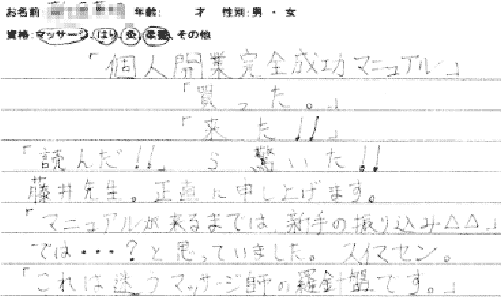 お名前 年齢: 才 性別:男・女
資格:マッサージ、はり、灸、柔整、その他
「個人開業完全成功マニュアル」
「買った。」
「来た!!」
「読んだ!!」 驚いた!!
藤井先生。正直に申し上げます。
「マニュアルが来るまでは、新手の振り込み△△」
では・・・?と思っていました。スイマセン。
「これは迷うマッサージ師の羅針盤です。」